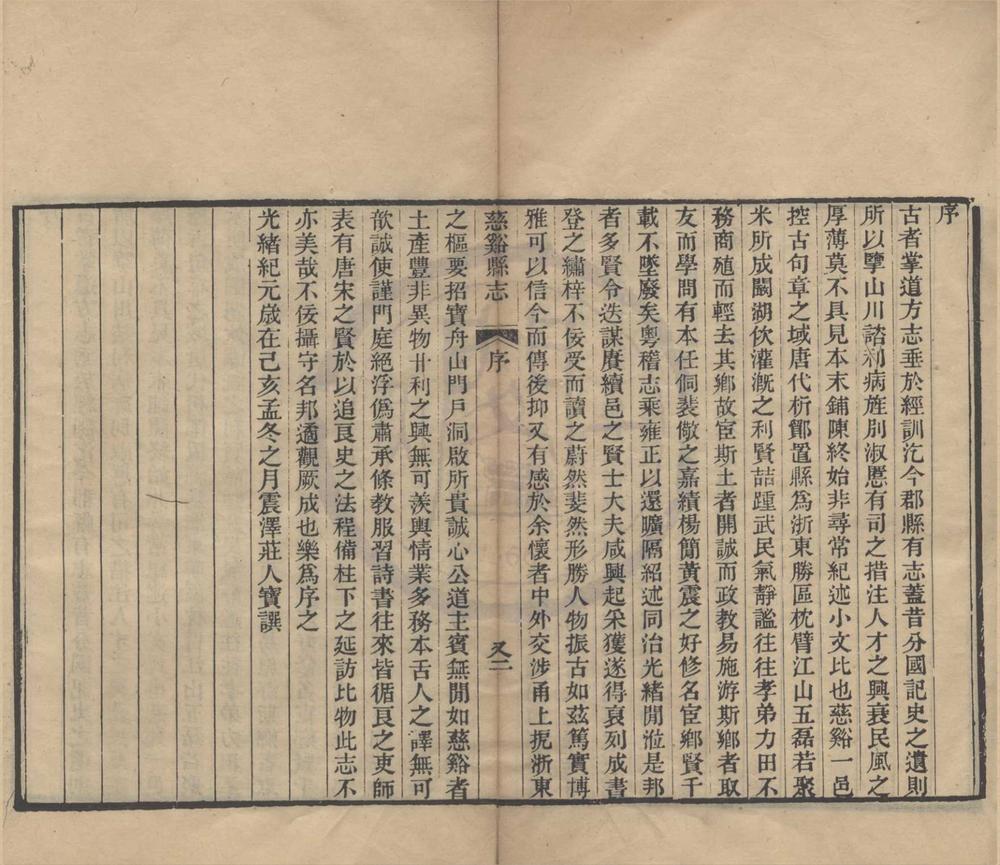 序
古者掌道方志垂於經訓汔今郡縣有志蓋昔分國記史之遺則
所以擥山川諮利病旌別淑慝有司之措注人才之興衰民風之
厚薄莫不具見本末鋪陳終始非尋常紀述小文比也慈谿一邑
控古句章之域唐代析鄮置縣爲浙東勝區枕臂江山五磊若聚
米所成闞湖佽灌漑之利賢喆踵武民氣靜謐往往孝弟力田不
務商殖而輕去其鄉故宦斯土者開誠而政教易施游斯鄉者取
友而學問有本任侗裴儆之嘉績楊簡黃震之好修名宦鄉賢千
載不墜廢矣粵稽志乘雍正以還曠隔紹述同治光緒閒涖是邦
者多賢令迭謀賡續邑之賢士大夫咸興起采獲遂得裒列成書
登之繡梓不佞受而讀之蔚然斐然形勝人物振古如茲篤實博
雅可以信今而傳後抑又有感於余懷者中外交涉甬上扼浙東
慈谿縣志 序 又二
之樞要招寶舟山門戶洞啟所貴誠心公道主賓無閒如慈谿者
土產豐非異物卝利之興無可羨輿情業多務本舌人之譯無可
歆誠使謹門庭絕浮僞肅承條教服習詩書往來皆循良之吏師
表有唐宋之賢於以追良史之法程備柱下之延訪比物此志不
亦美哉不佞攝守名邦適觀厥成也樂爲序之
光緒紀元歲在己亥孟冬之月震澤莊人寶譔